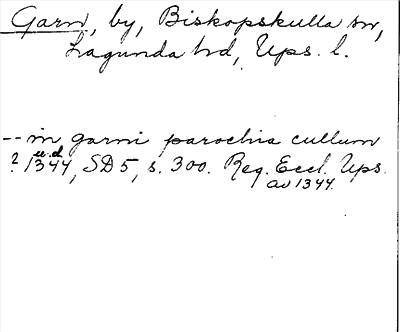 Garn, by, Biskopskulla sn,
Lagunda hd, Ups. l.
-- in garni parochia cullum
? u.d. 1344, SD 5, s. 300. Reg. Eccl. Ups.
av 1344.